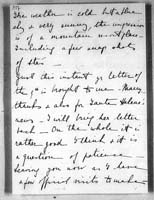 The weather is cold but the
sky is very sunny the impression
is of a mountain meet place
Including a few snap shots
of this —
Just this instant yr letter of
the 9th is brought me — Many
thanks & also for Santa
news — I will bring her letter
back — On the whole it is
rather good I think & it is
a question of patience —
leaving you now as I have
a few official visits to make